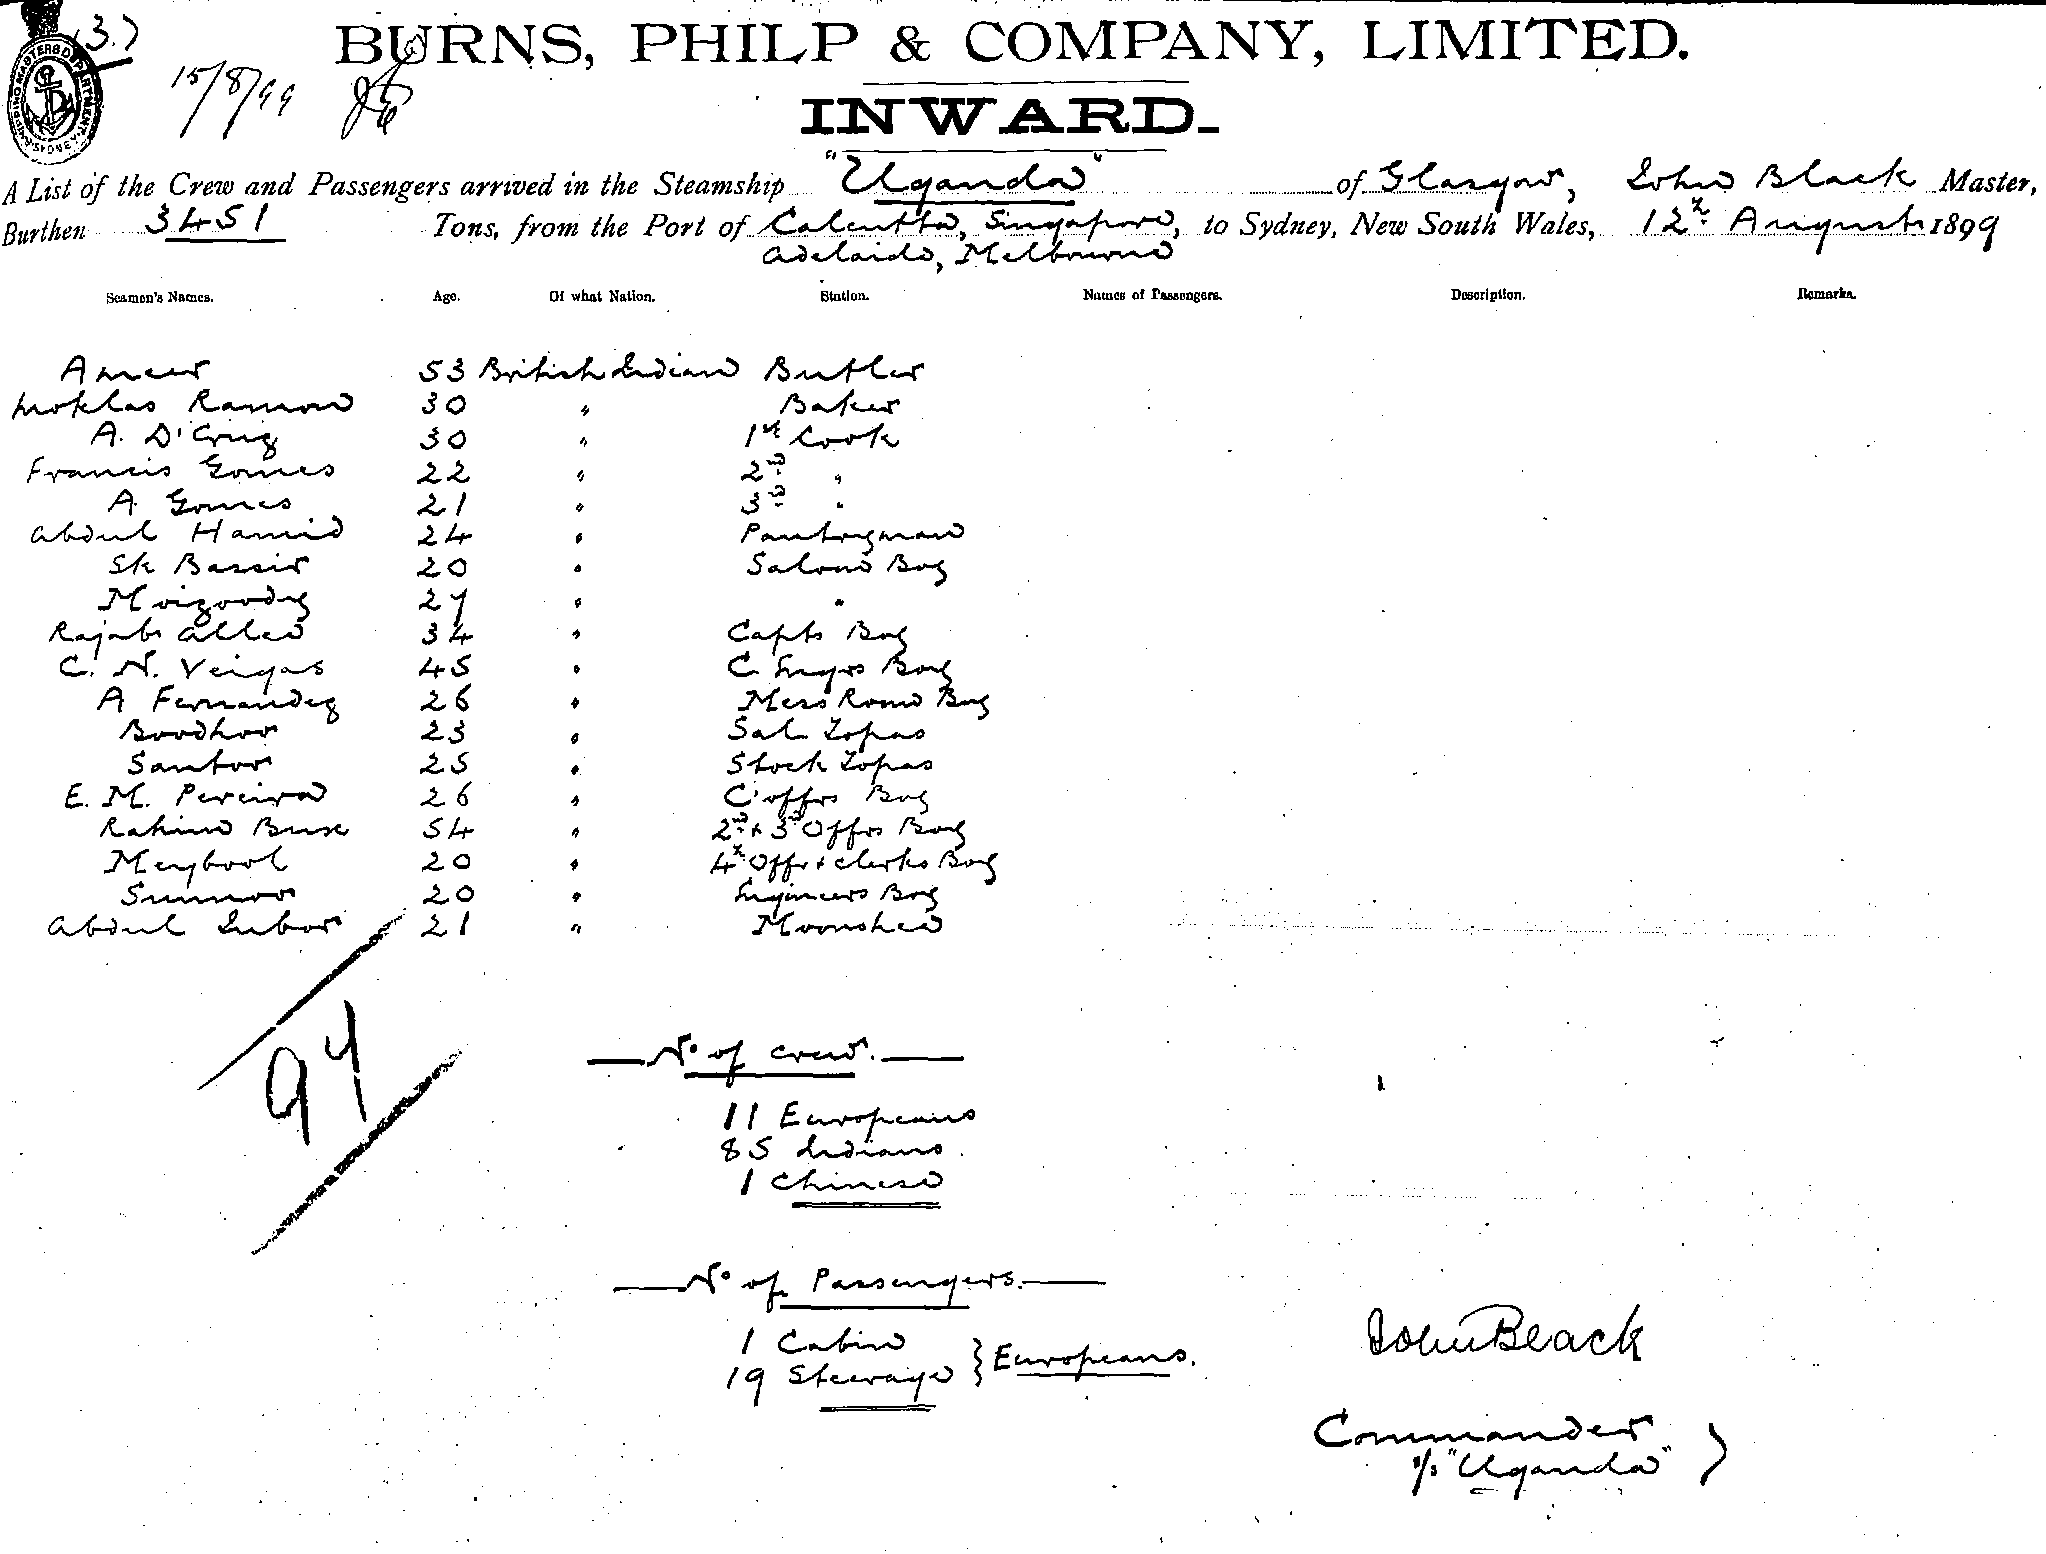 (3.)
SHIPPING MASTERS DEPARTMENT SYDNEY
15/8/99
BURNS, PHILP & COMPANY, LIMITED.
INWARD.
A List of the Crew and Passengers arrived in the Steamship "Uganda" of Glasgow, John Black Master,
Burthen 3451 Tons, from the Port of Calcutta, Singapore, to Sydney, New South Wales, 12th August 1899
Adelaide, Melbourne
Seamen's Names. Age. Of what Nation. Station. Names of Passengers. Description. Remarks.
Ameer 53 British Indian Butler
Moklas Ramon 30 " Baker
A. D'Cruz 30 " 1st Cook
Francis Gomes 22 " 2nd "
A Gomes 21 " 3rd "
Abdul Hamid 24 " Pantryman
Sk Bassir 20 " Saloon Boy
Moizoody 27 " "
Rajab Allee 34 " Capts Boy
C. N. Veigas 45 " C. Engrs Boy
A Fernandez 26 " Mess Room Boy
Boodhoo 23 " Sal. Topas
Santoo 25 " Stock Topas
E. M. Pereira 26 " C offrs Boy
Rahim Bux 54 " 2nd & 3rd Offrs Boy
Meybool 20 " 4th Offr & Clerks Boy
Sunnoo 20 " Engineers Boy
Abdul Subor 21 " Moonshee
97
No of Crew.
11 Europeans
85 Indians
1 Chinese
No of Passengers.
1 Cabin
19 Steerage } Europeans.
John Black
Commander
s/s "Uganda" }